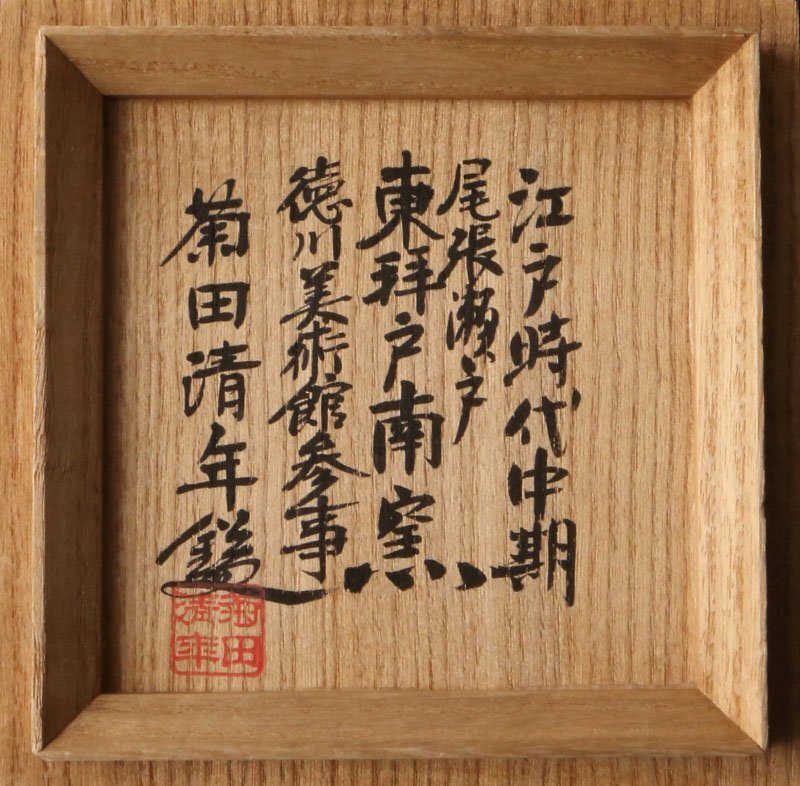 江戸時代中期
尾張瀬戸
東拝戸南窯
徳川美術館参事
菊田清年鑑
菊田清年